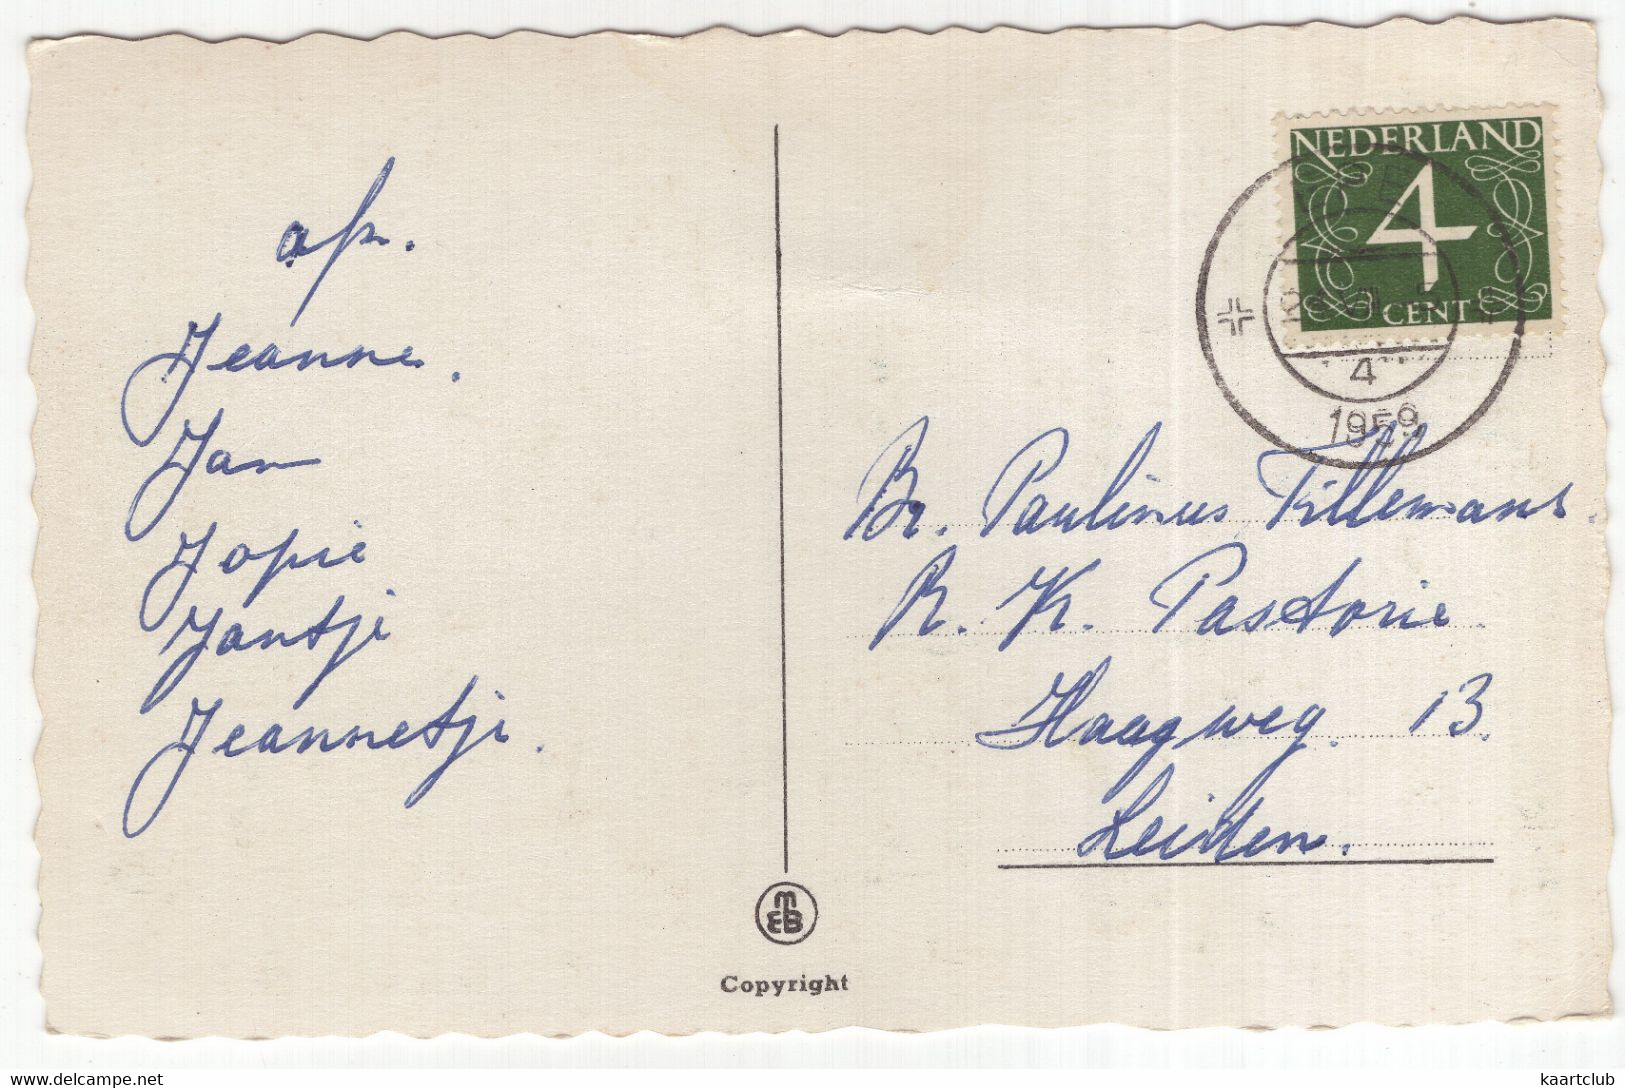 afz.
Jeanne.
Jan
Jopie
Jantje
Jeannetje.
NEDERLAND
4
CENT
4
1959
Br. Paulinus Tillemans.
R. K. Pastorie.
Haagweg. 13.
Leiden.
MEB
Copyright
www.delcampe.net
kaartclub